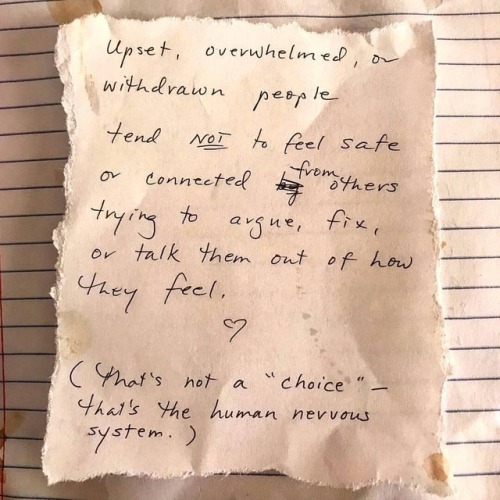 Upset, overwhelmed, or
withdrawn people
tend NOT to feel safe
or connected from others
trying to argue, fix,
or talk them out of how
they feel.
♡
(that's not a "choice" –
that's the human nervous
system.)